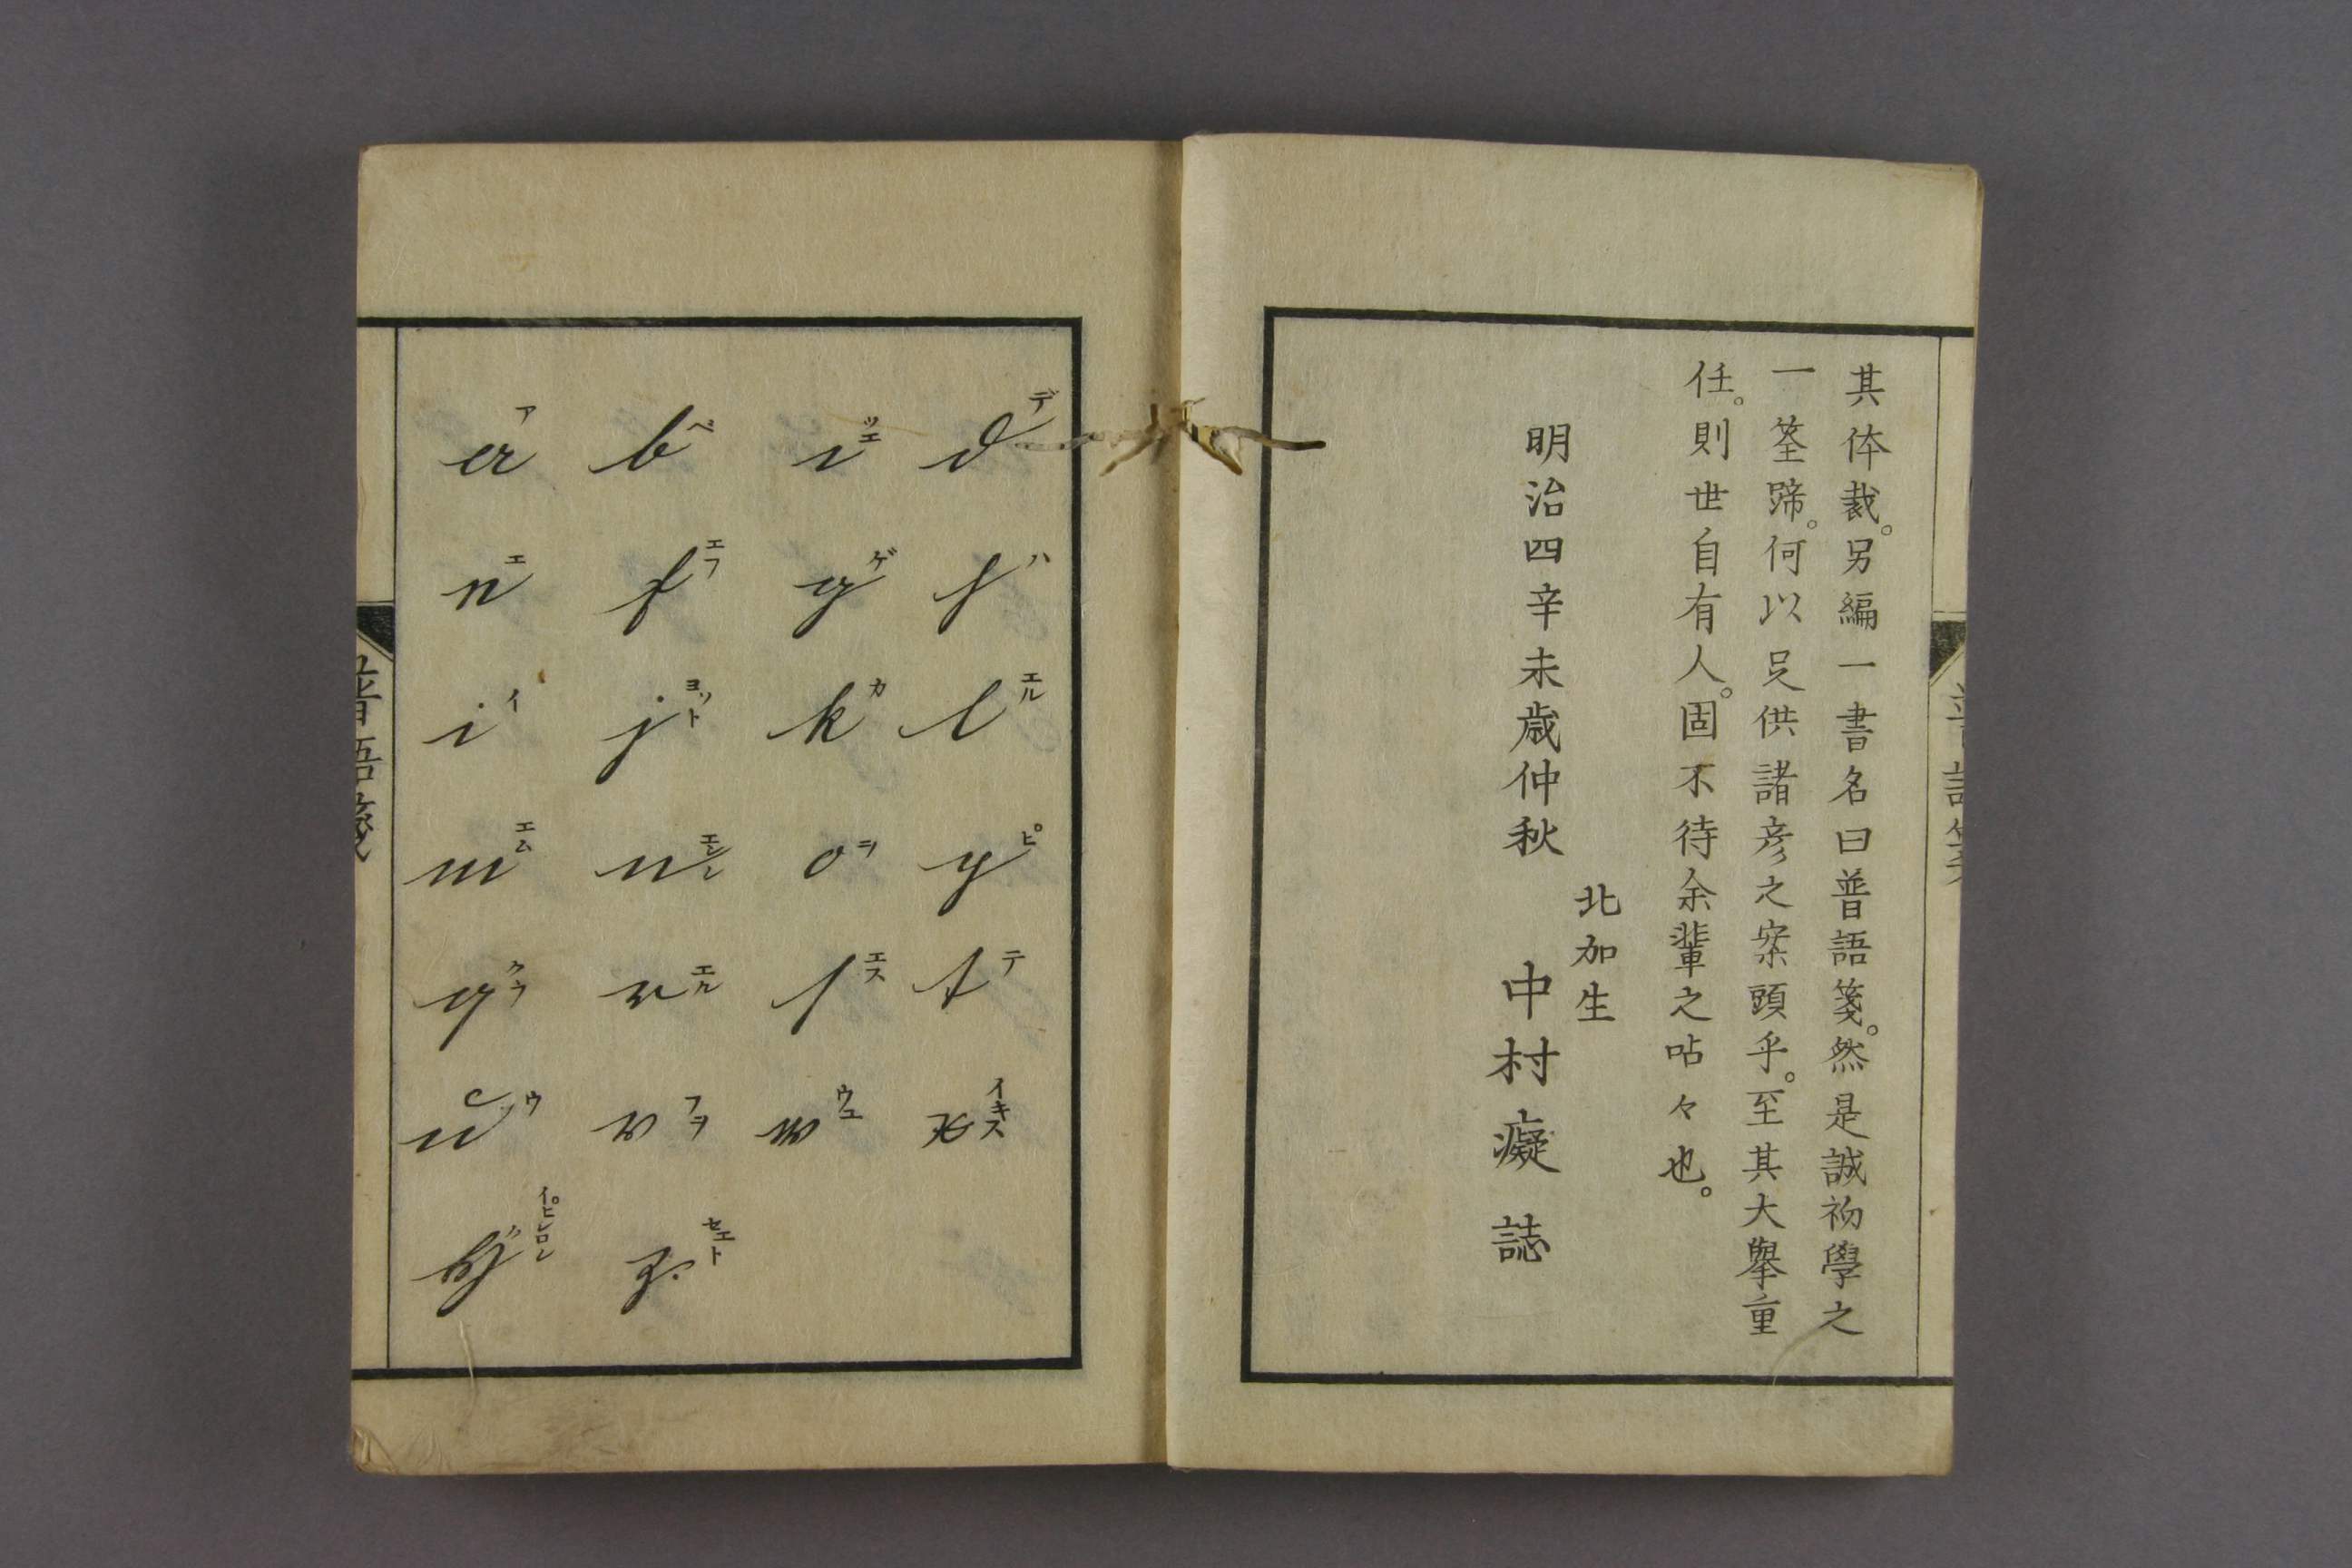 其体裁。另編一書名曰普語箋。然是誠初學之
一筌蹄。何以足供諸彦之案頭乎。至其大擧重
任。則世自有人。固不待余輩之呫々也。
明治四辛未歳仲秋
北加生
中村癡誌
a ア b ベ c ツエ d デ
e エ f エフ g ゲ h ハ
i イ j ヨット k カ l エル
m エム n エン o ヲ p ピ
q クウ r エル s エス t テ
u ウ v フヲ w ウエ x イキス
y イピシロン z セエト
普語箋